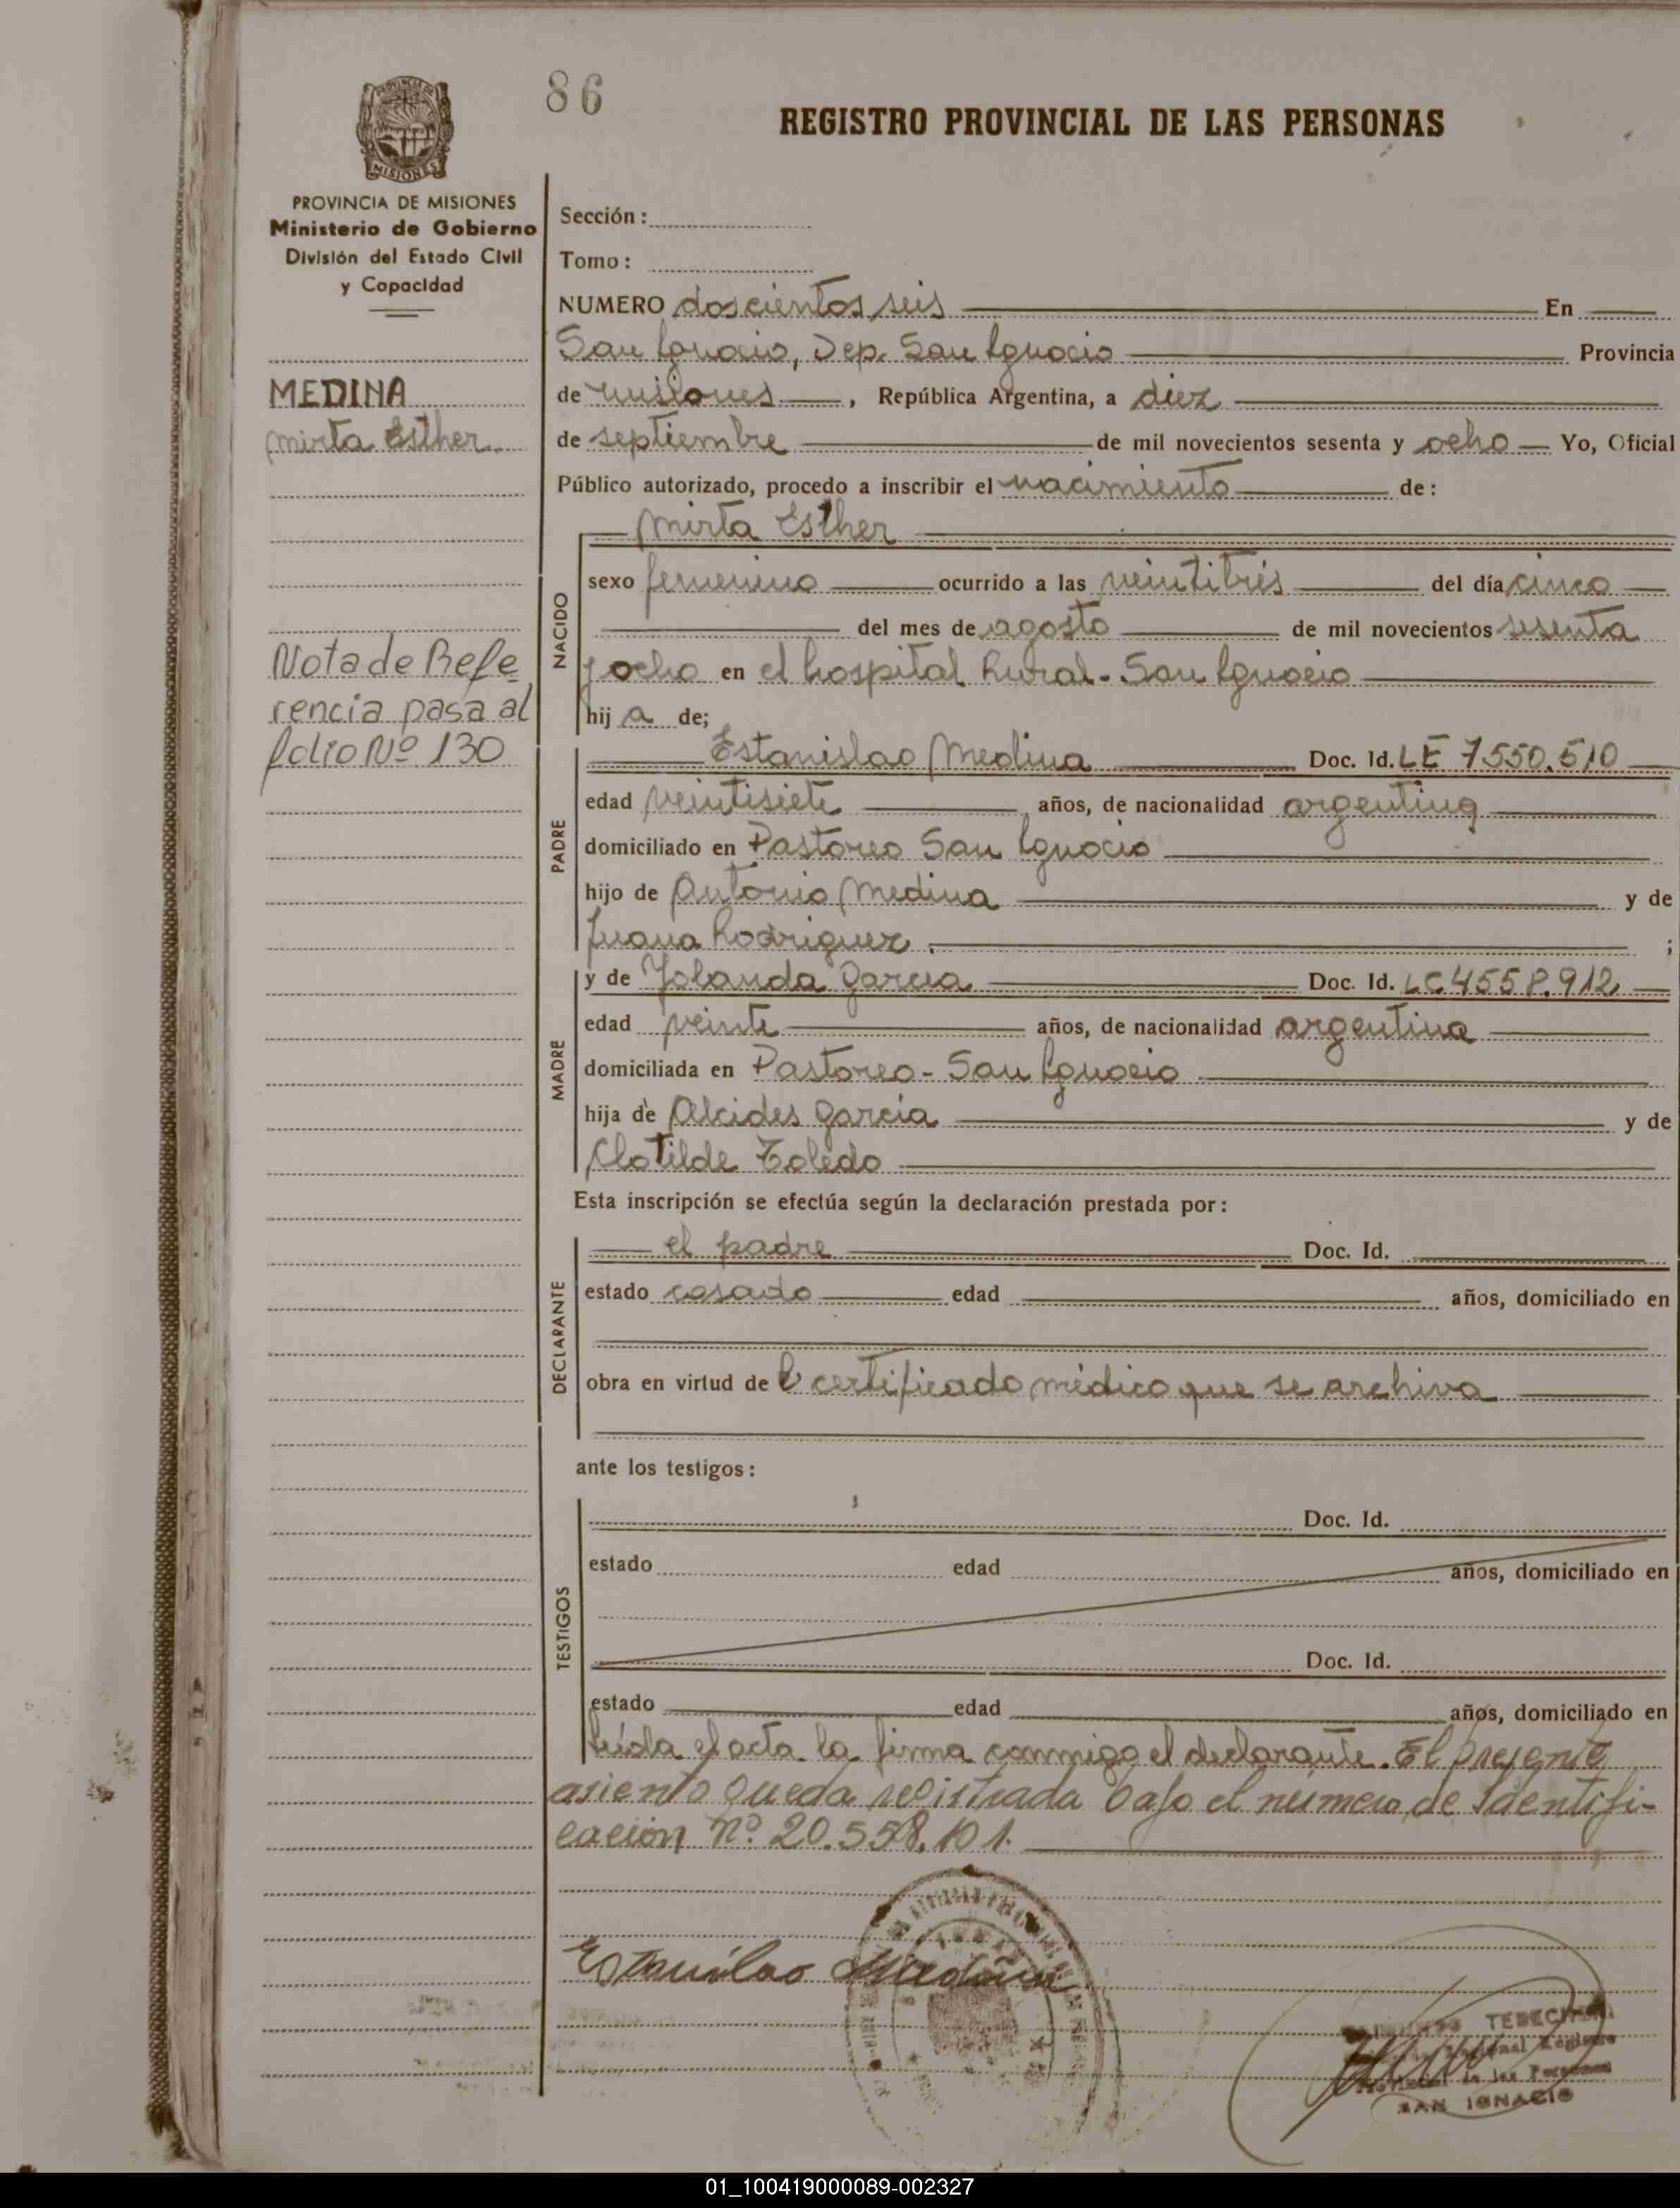 86
REGISTRO PROVINCIAL DE LAS PERSONAS
PROVINCIA DE MISIONES
Ministerio de Gobierno
División del Estado Civil
y Capacidad
MEDINA
Mirta Esther
Nota de Refe
rencia pasa al
folio Nº 130
Sección:
Tomo:
NUMERO doscientos seis En
San Ignacio, Dep. San Ignacio Provincia
de Misiones, República Argentina, a diez
de septiembre de mil novecientos sesenta y ocho Yo, Oficial
Público autorizado, procedo a inscribir el nacimiento de:
NACIDO
Mirta Esther
sexo femenino ocurrido a las veintitrés del día cinco
del mes de agosto de mil novecientos sesenta
y ocho en el hospital Rural - San Ignacio
hij a de;
PADRE
Estanislao Medina Doc. Id. LE 7550.510
edad veintisiete años, de nacionalidad argentina
domiciliado en Pastoreo San Ignacio
hijo de Antonio Medina y de
Juana Rodriguez. ;
MADRE
y de Yolanda Garcia Doc. Id. LC 4558.912
edad veinte años, de nacionalidad argentina
domiciliada en Pastoreo - San Ignacio
hija de Alcides Garcia y de
Clotilde Toledo
Esta inscripción se efectúa según la declaración prestada por:
DECLARANTE
el padre Doc. Id.
estado casado edad años, domiciliado en
obra en virtud de l certificado médico que se archiva
ante los testigos:
TESTIGOS
Doc. Id.
estado edad años, domiciliado en
Doc. Id.
estado edad años, domiciliado en
Leída el acta la firma conmigo el declarante. El presente
asiento queda registrada bajo el número de Identifi-
cación nº 20.558.101.
Estanislao Medina
SAN IGNACIO
01_100419000089-002327